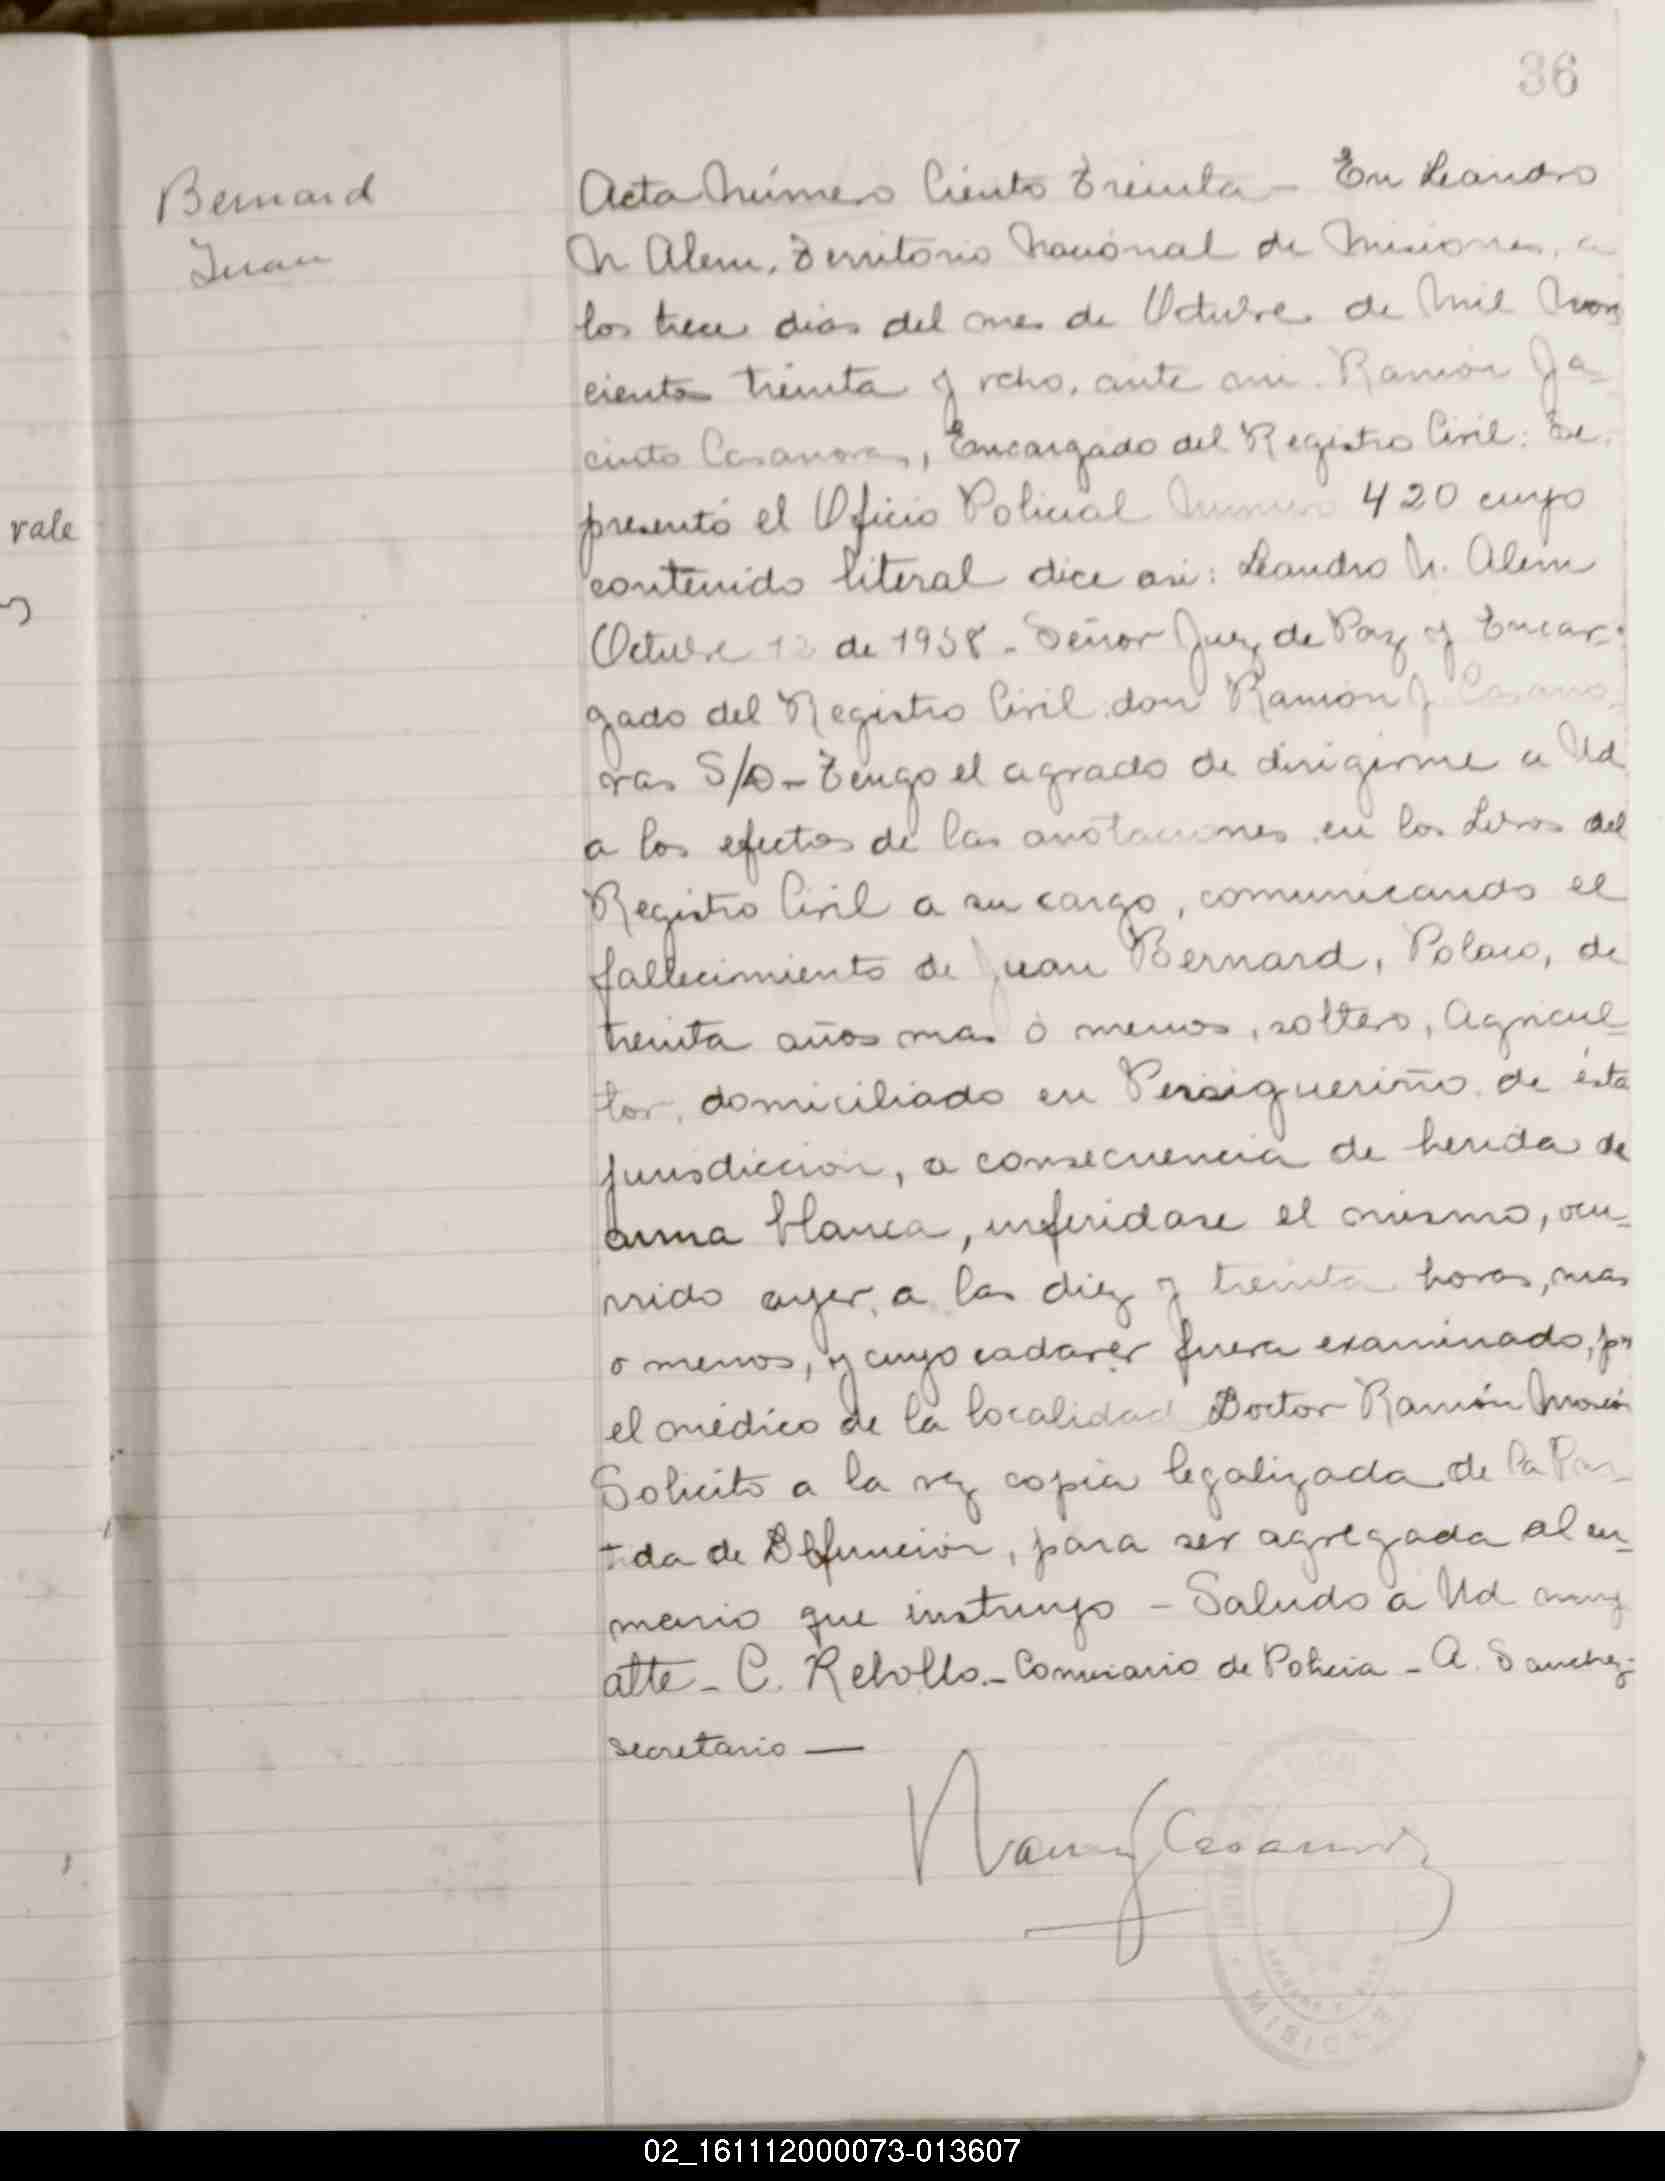 36
Bernard
Juan
rale
Acta Número Ciento Treinta - En Leandro
N Alem, Territorio Nacional de Misiones, a
los trece dias del mes de Octubre de Mil Nove
cientos treinta y ocho, ante mi. Ramón Ja-
cinto Casanovas, Encargado del Registro Civil: Se
presentó el Oficio Policial Número 420 cuyo
contenido literal dice asi: Leandro N. Alem
Octubre 12 de 1938 - Señor Juez de Paz y Encar-
gado del Registro Civil don Ramón J. Casano
vas S/D - Tengo el agrado de dirigirme a Ud
a los efectos de las anotaciones en los Libros del
Registro Civil a su cargo, comunicando el
fallecimiento de Juan Bernard, Polaco, de
treinta años mas o menos, soltero, Agricul-
tor, domiciliado en Persigueriño de ésta
jurisdiccion, a consecuencia de herida de
arma blanca, inferidase el mismo, ocu-
rrido ayer a las diez y treinta horas, mas
o menos, y cuyo cadaver fuera examinado, por
el médico de la localidad Doctor Ramón
Solicito a la vez copia legalizada de la Par-
tida de Defuncion, para ser agregada al su-
mario que instruyo - Saludo a Ud muy
atte - C. Rebollo - Comisario de Policia - A. Sanchez -
secretario —
Ramon J Casanovas
MISIONES
02_161112000073-013607